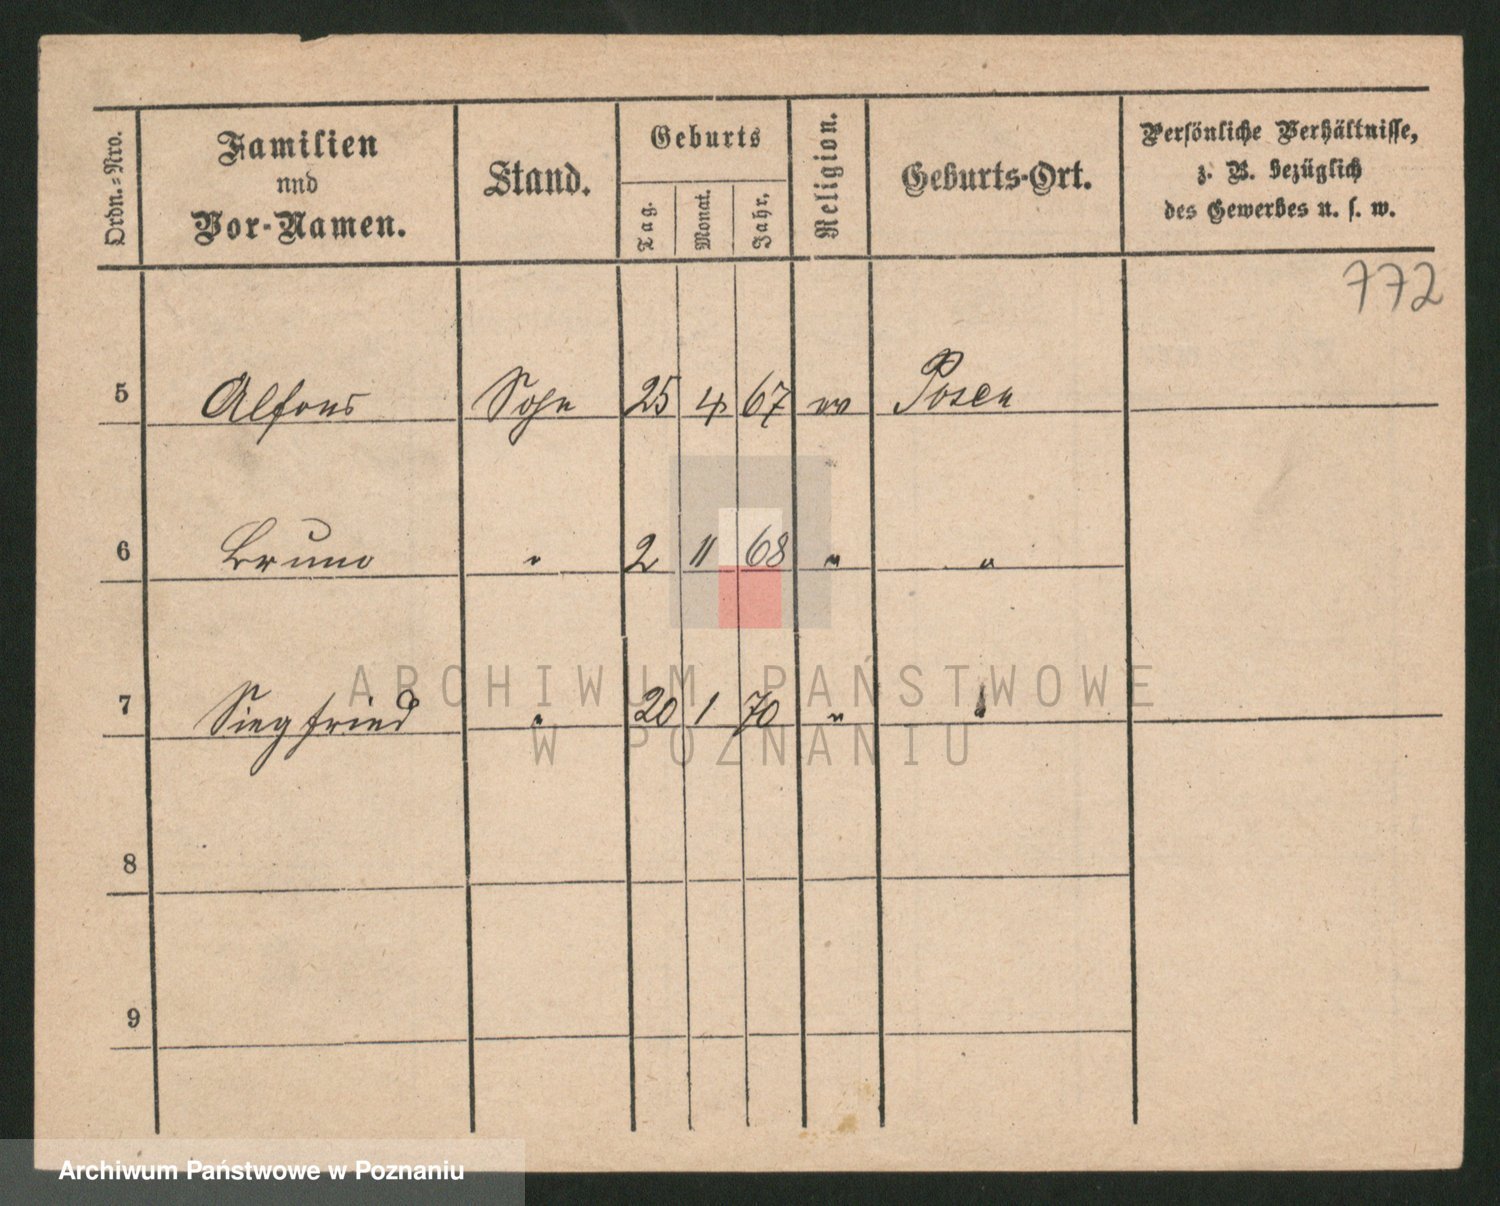 Ordn.-Nro.
Familien
und
Vor-Namen.
Stand.
Geburts
Tag.
Monat.
Jahr.
Religion.
Geburts-Ort.
Persönliche Verhältnisse,
z. B. bezüglich
des Gewerbes u. s. w.
772
5 Alfons Sohn 25 4 67 Posen
6 Bruno " 2 11 68 " "
7 Siegfried " 20 1 70 " "
8
9
ARCHIWUM PAŃSTWOWE
W POZNANIU
Archiwum Państwowe w Poznaniu